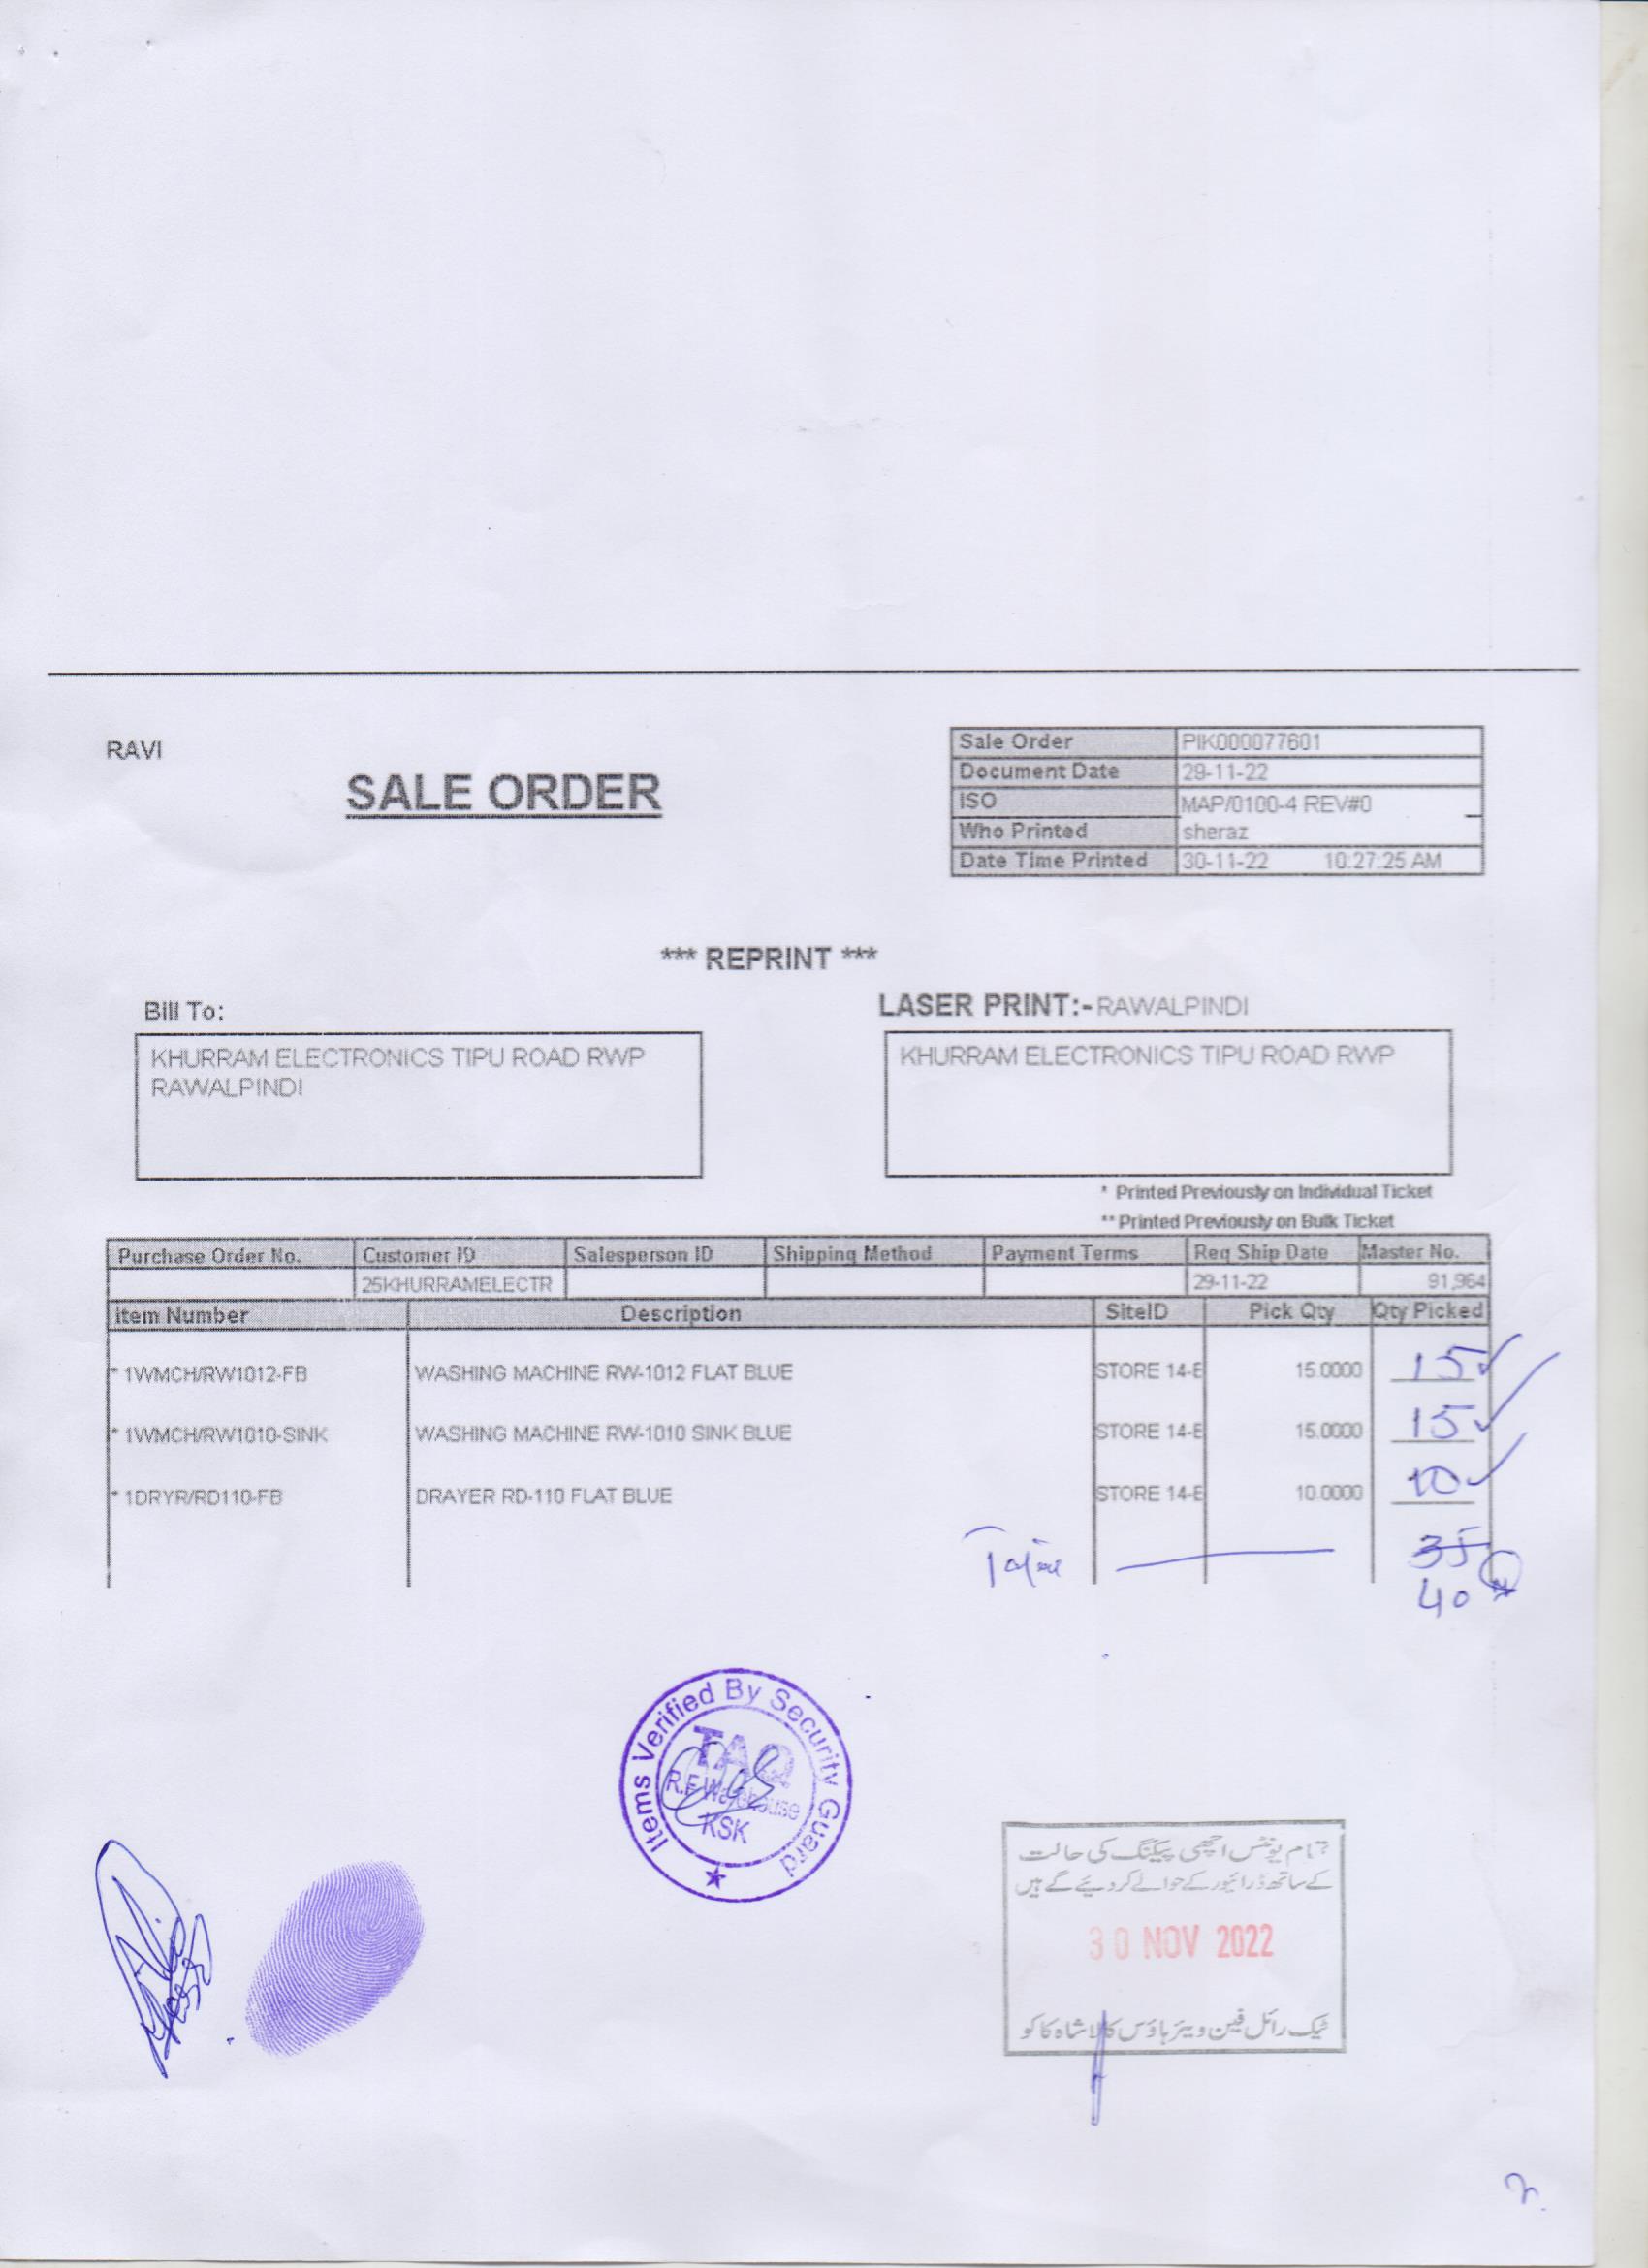 RAVI
SALE ORDER
Sale Order PIK000077601
Document Date 29-11-22
ISO MAP/0100-4 REV#0
Who Printed sheraz
Date Time Printed 30-11-22 10:27:25 AM
*** REPRINT ***
Bill To:
LASER PRINT:- RAWALPINDI
KHURRAM ELECTRONICS TIPU ROAD RWP
RAWALPINDI
KHURRAM ELECTRONICS TIPU ROAD RWP
* Printed Previously on Individual Ticket
** Printed Previously on Bulk Ticket
Purchase Order No. Customer ID Salesperson ID Shipping Method Payment Terms Req Ship Date Master No.
25KHURRAMELECTR 29-11-22 91,964
Item Number Description SiteID Pick Qty Qty Picked
* 1WMCH/RW1012-FB WASHING MACHINE RW-1012 FLAT BLUE STORE 14-E 15.0000 15
* 1WMCH/RW1010-SINK WASHING MACHINE RW-1010 SINK BLUE STORE 14-E 15.0000 15
* 1DRYR/RD110-FB DRAYER RD-110 FLAT BLUE STORE 14-E 10.0000 10
35
40
Items Verified By Security Guard
TAQ
R.F Warehouse
KSK
تمام یونٹس اچھی پیکنگ کی حالت
کے ساتھ ڈرائیور کے حوالے کر دیئے گے ہیں
30 NOV 2022
ٹیک رائل فین ویئر ہاؤس کالا شاہ کاکو